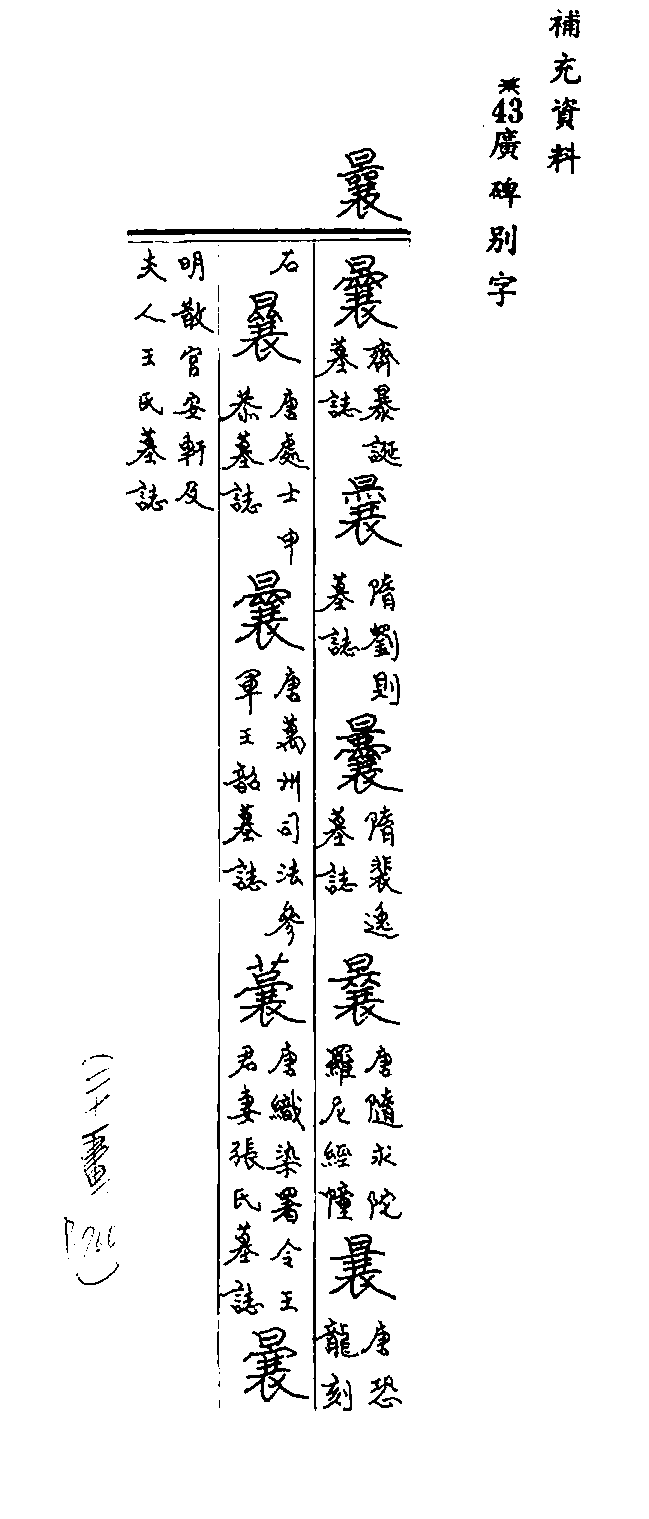 補充資料
※43廣碑別字
曩
曩齊暴誕墓誌曩隋劉則墓誌曩隋裴逸墓誌曩唐隨求陀羅尼經幢曩唐恐龍刻
石曩唐處士申恭墓誌曩唐萬州司法參軍王韶墓誌曩唐織染署令王君妻張氏墓誌曩
明散官安軒及夫人王氏墓誌
(二十一畫